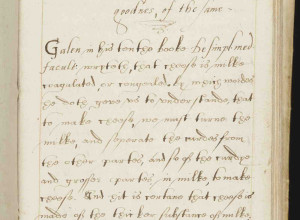 goodnes, of the same
Galen in his tenthe booke he simp: med:
facult: wryteth, that cheese is milke
coagulated, or congealed, by which wordes
he doth geve us to understande, that
to make cheese, we must turne the
milke, and seperate the curdes from
the other partes, and so of the curdye
and grosse partes in milke, is made
cheese. And yet is certane that cheese is
made of the thicker substance of milke